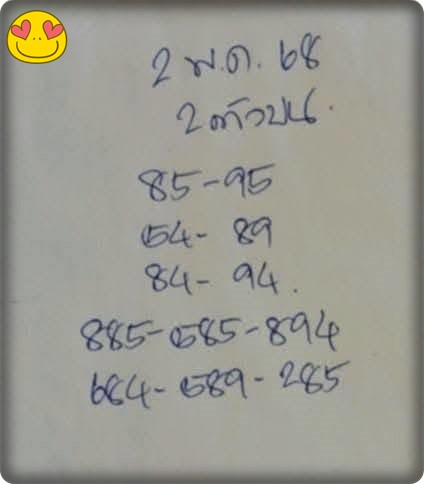 2 พ.ค. 68
2 ตัวบน.
85-95
54- 89
84- 94.
885-585-894
684-589-285